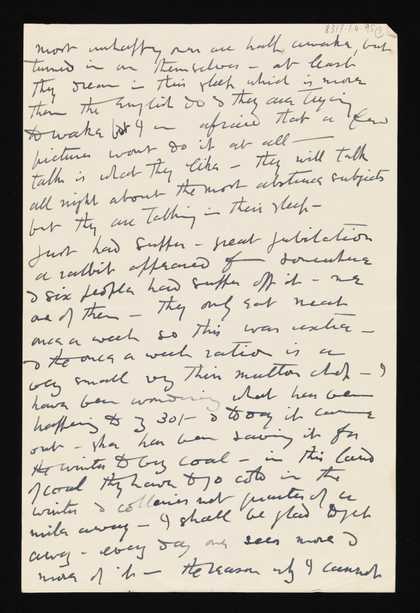 8317.1.4.95
most unhappy ones are half awake, but
turned in on themselves - at least
they dream in their sleep which is more
than the English do & they are trying
to wake but I am afraid that a few
pictures wont do it at all -
talk is what they like - they will talk
all night about the most abstruse subjects
but they are talking in their sleep -
Just had supper - great jubilation
a rabbit appeared from somewhere
& six people had supper off it - me
one of them - they only eat meat
once a week so this was extra -
& the once a week ration is a
very small very thin mutton chop - I
have been wondering what has been
happening to my 30/- & today it came
out - she has been saving it for
the winter to buy coal - in this land
of coal they have to go cold in the
winter & collieries not quarter of a
mile away - I shall be glad to get
away - every day one sees more &
more of it - the reason why I cannot